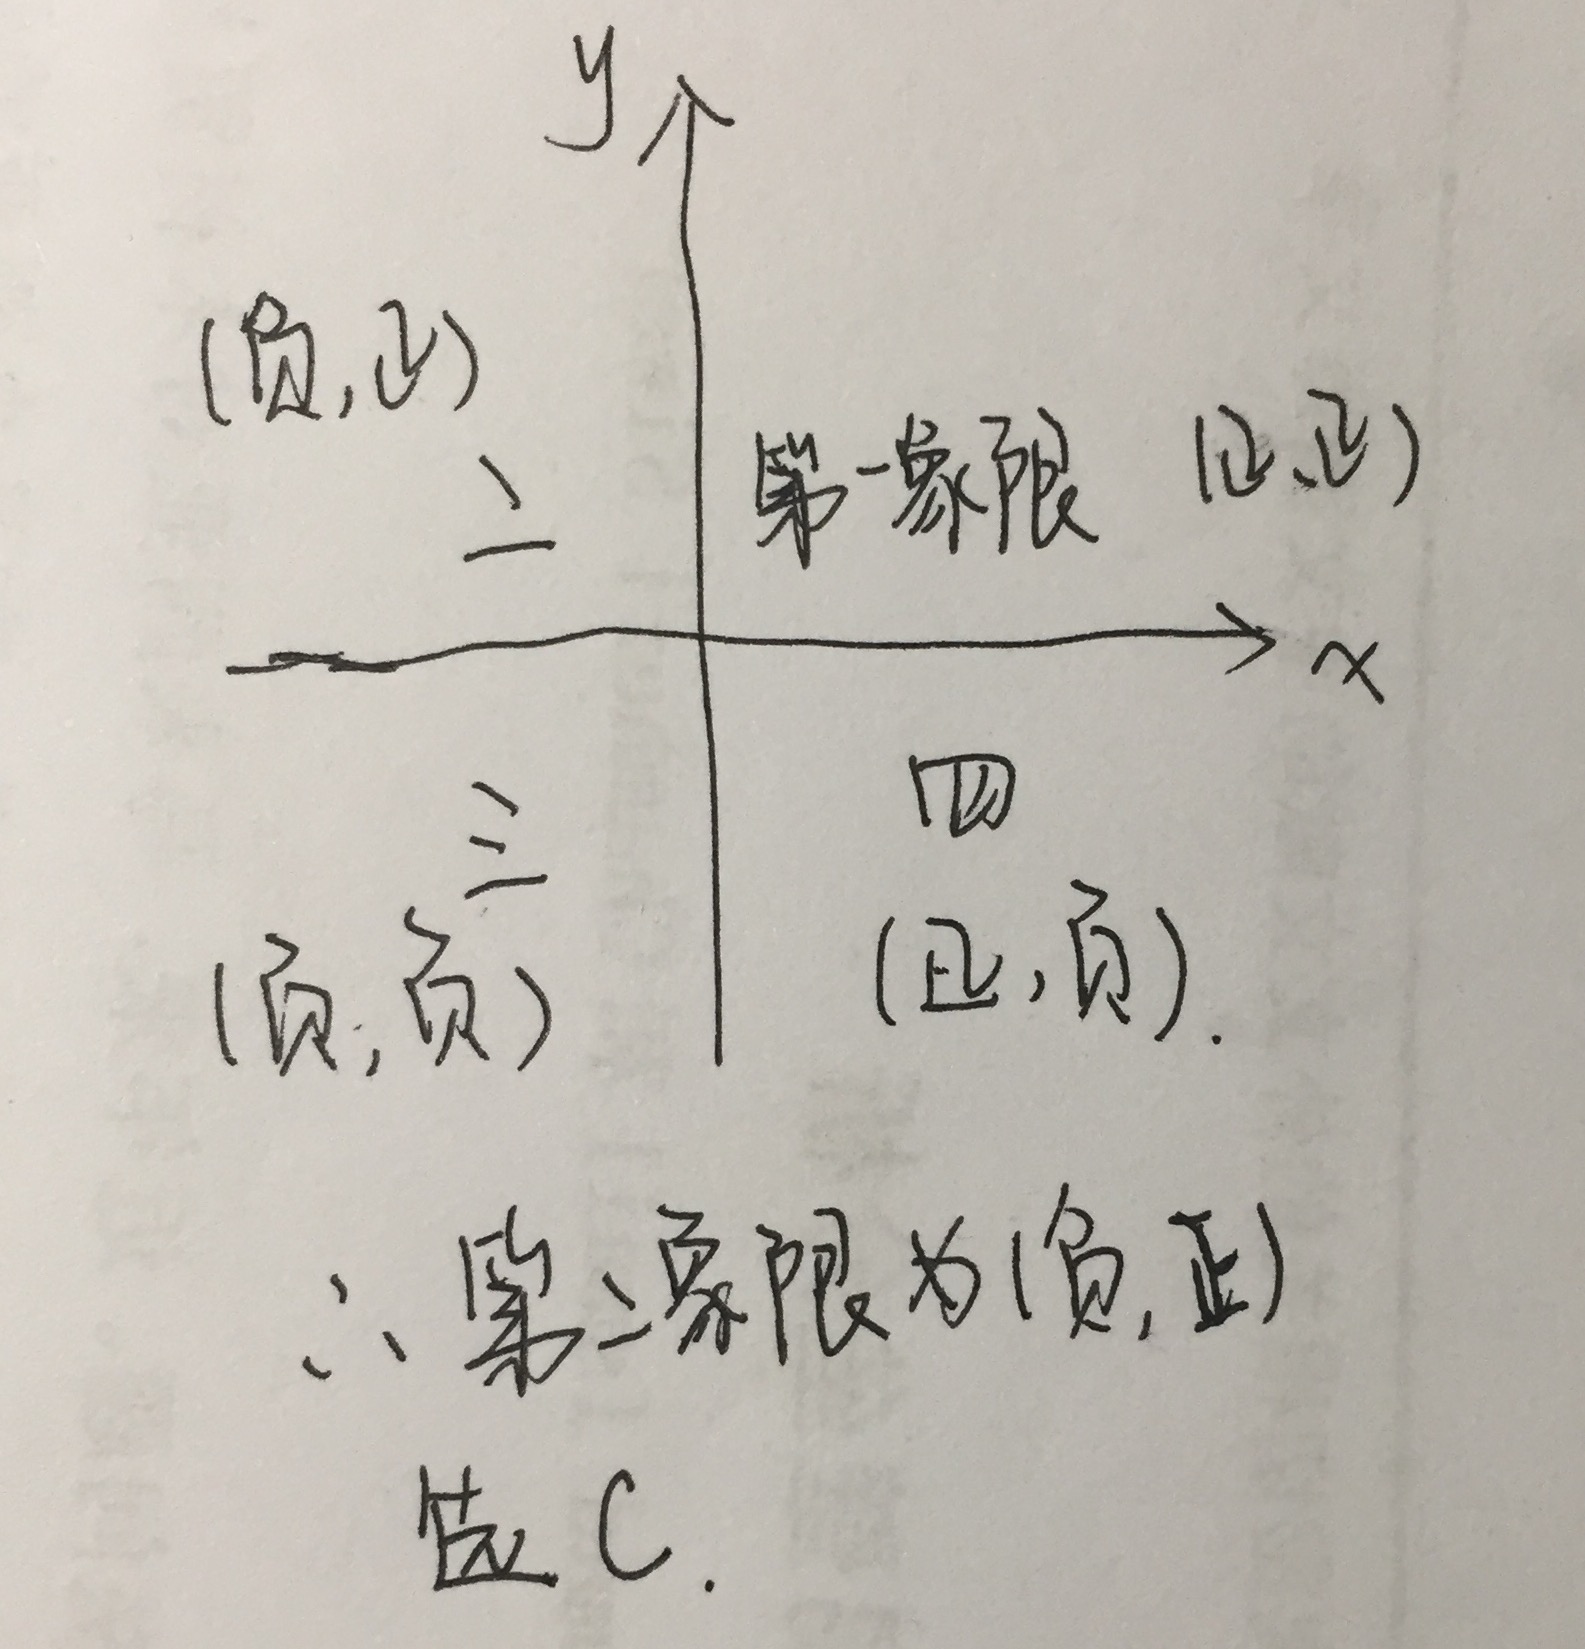 y
(负,正)
二
第一象限 (正,正)
x
三
四
(负,负)
(正,负).
∴第二象限为(负,正)
选C.